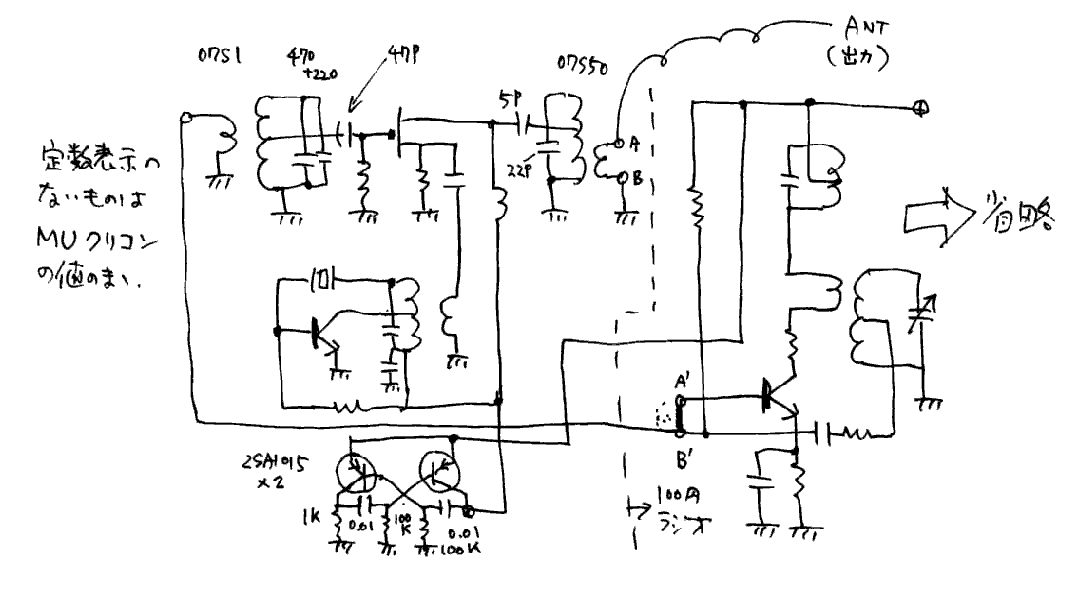 ANT
(出力)
07S1
470
+220
47P
07S50
5P
22P
A
B
定数表示の
ないものは
MUクリコン
の値のまま.
省略
A'
B'
2SA1015
×2
1K
0.01
100
K
0.01
100K
100円
ラジオ